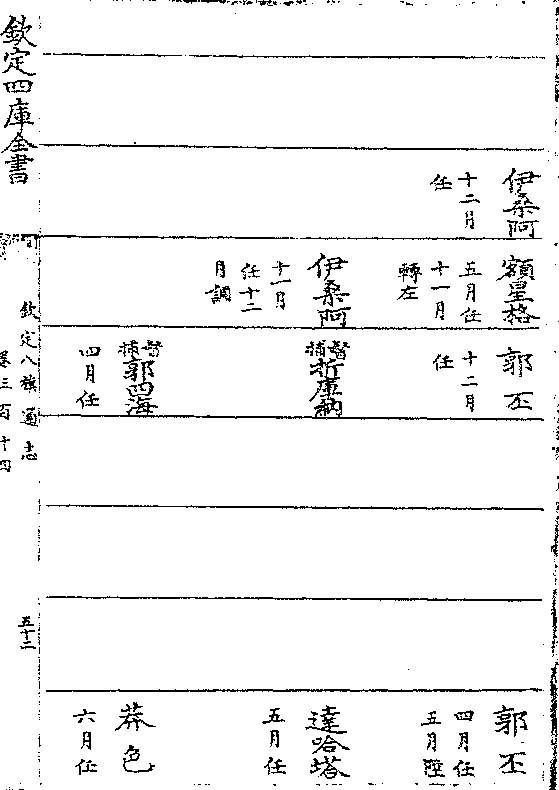 伊桑阿
十二月
任
額星格
五月任
十一月
轉左
伊桑阿
十一月
任十二
月調
郭丕
十二月
任
督捕折庫納
督捕郭四海
四月任
郭丕
四月任
五月陞
達哈塔
五月任
莽色
六月任
欽定四庫全書
欽定八旗通志
卷三百十四
五十二